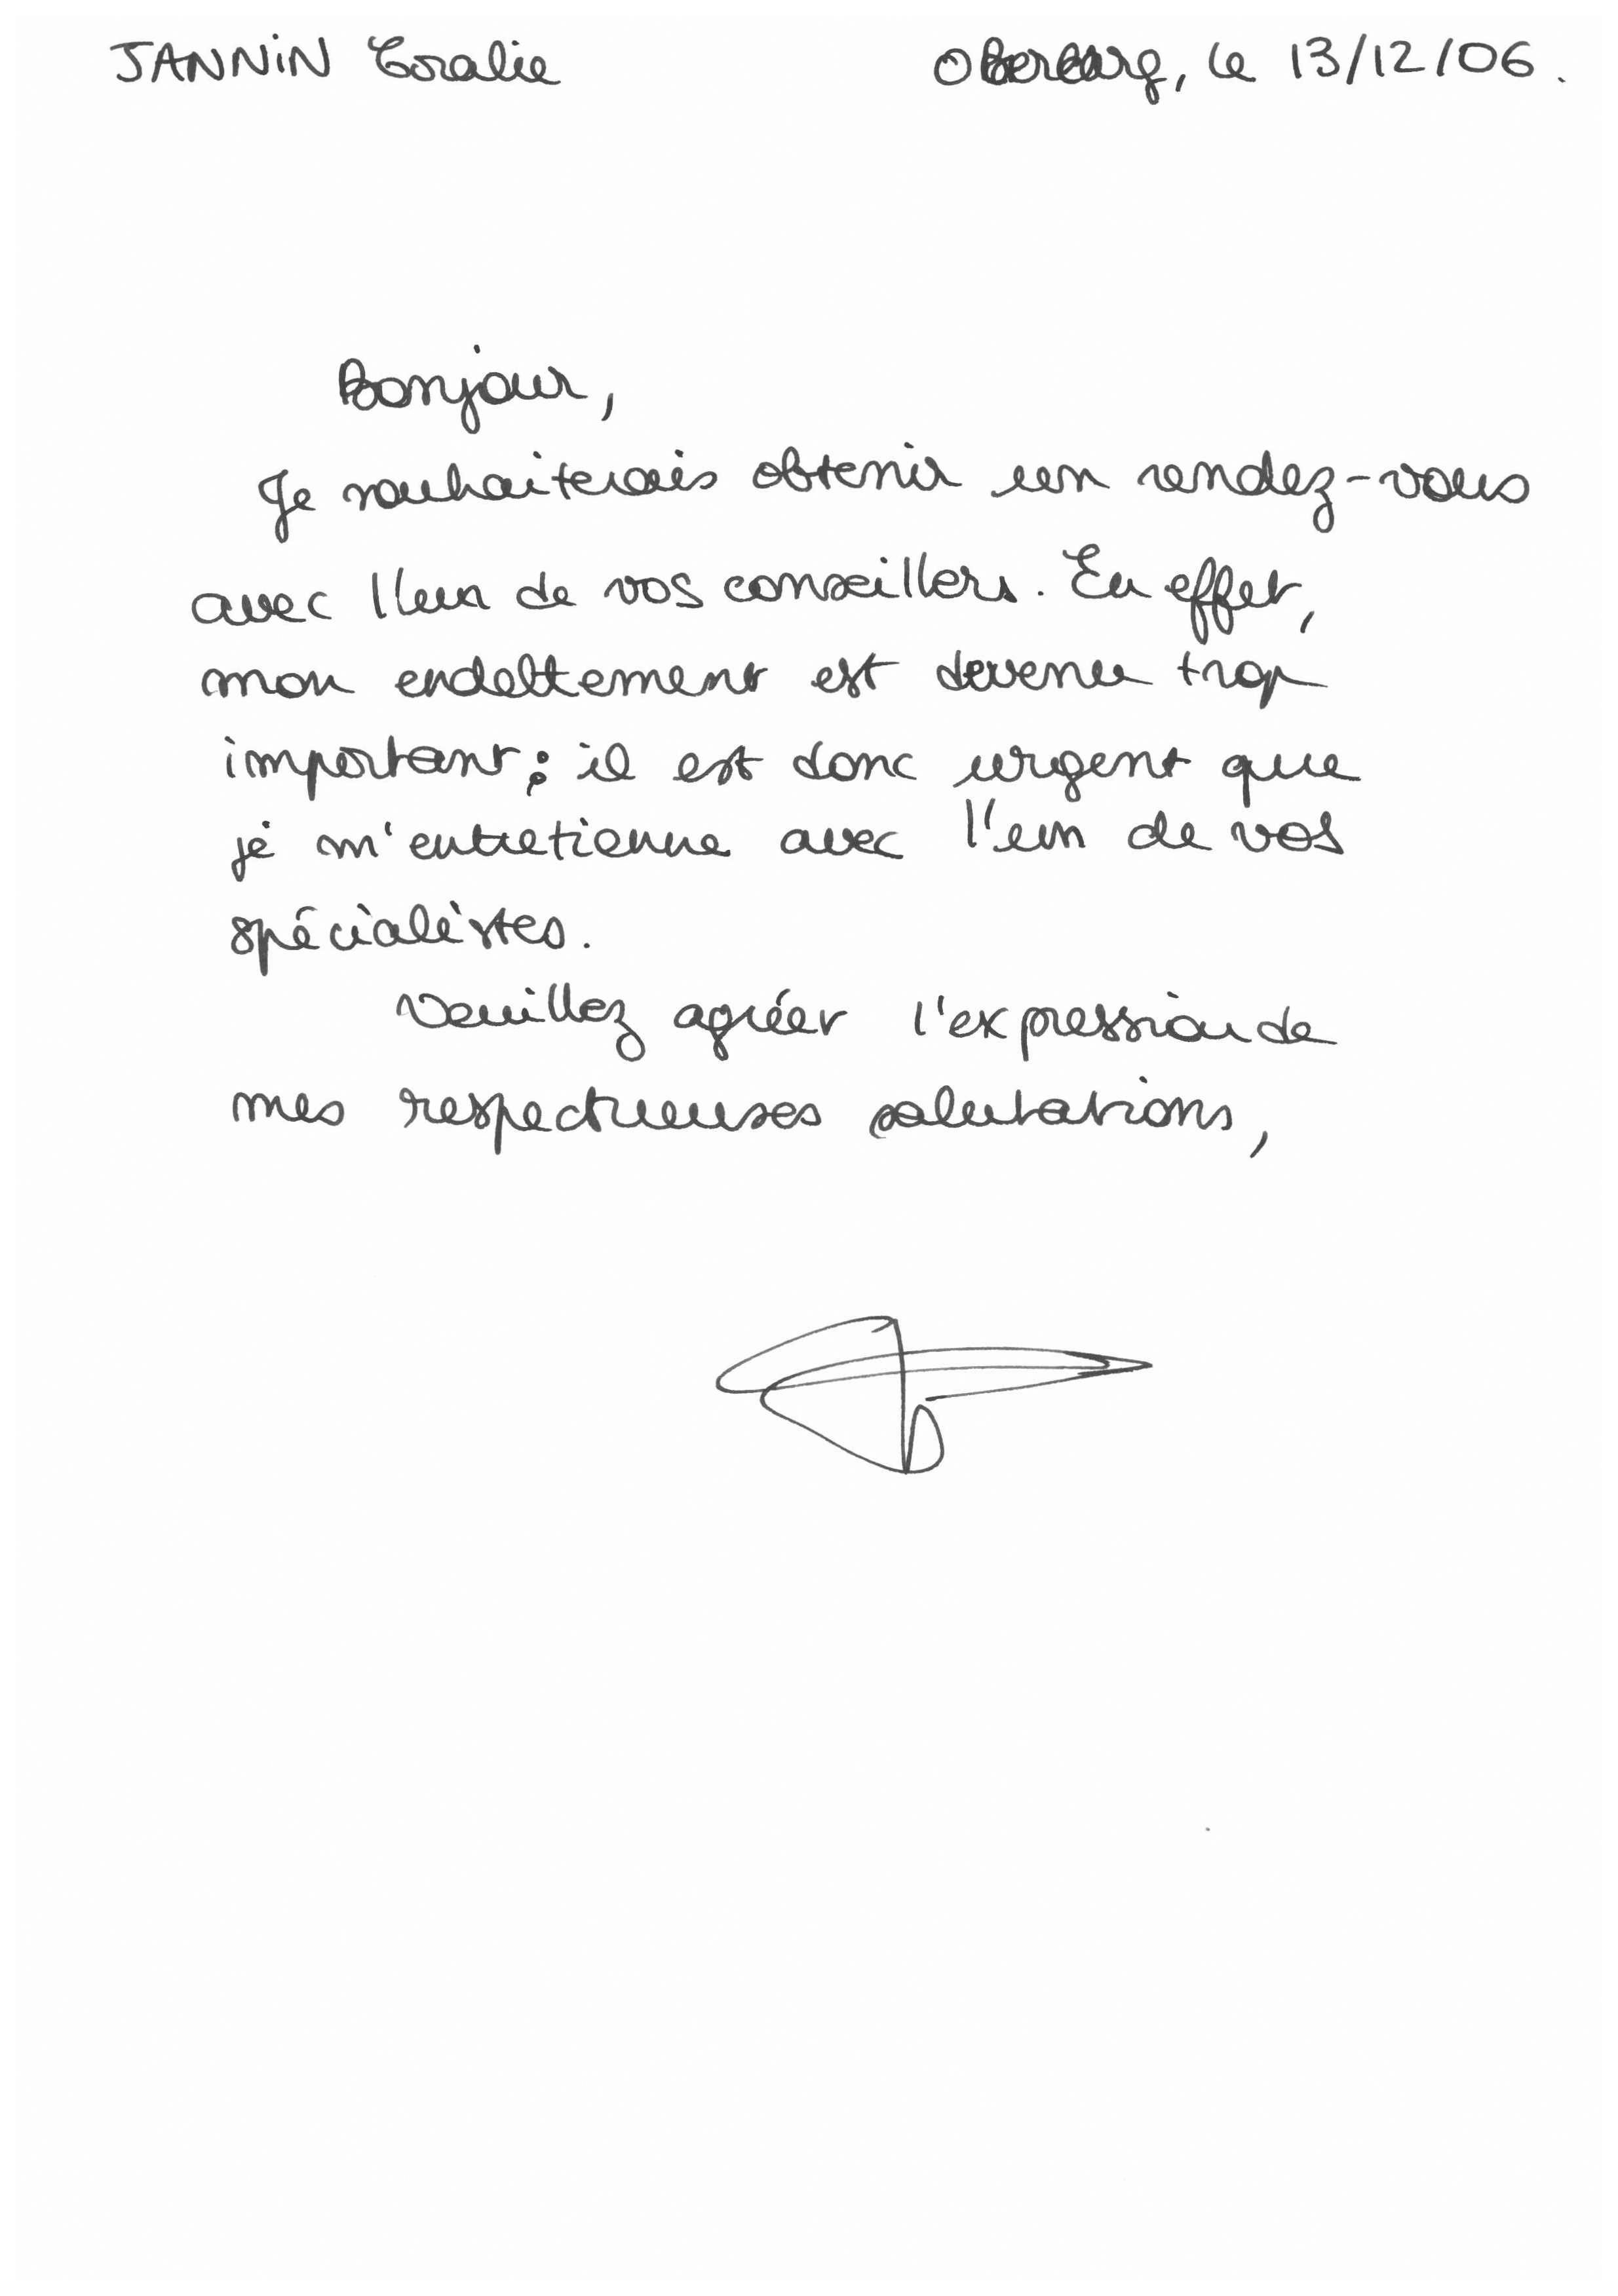 JANNIN Coralie
Oberbarg, le 13/12/06.
Bonjour,
Je souhaiterais obtenir un rendez-vous
avec l'un de vos conseillers. En effet,
mon endettement est devenu trop
important ; il est donc urgent que
je m'entretienne avec l'un de vos
spécialistes.
Veuillez agréer l'expression de
mes respectueuses salutations,